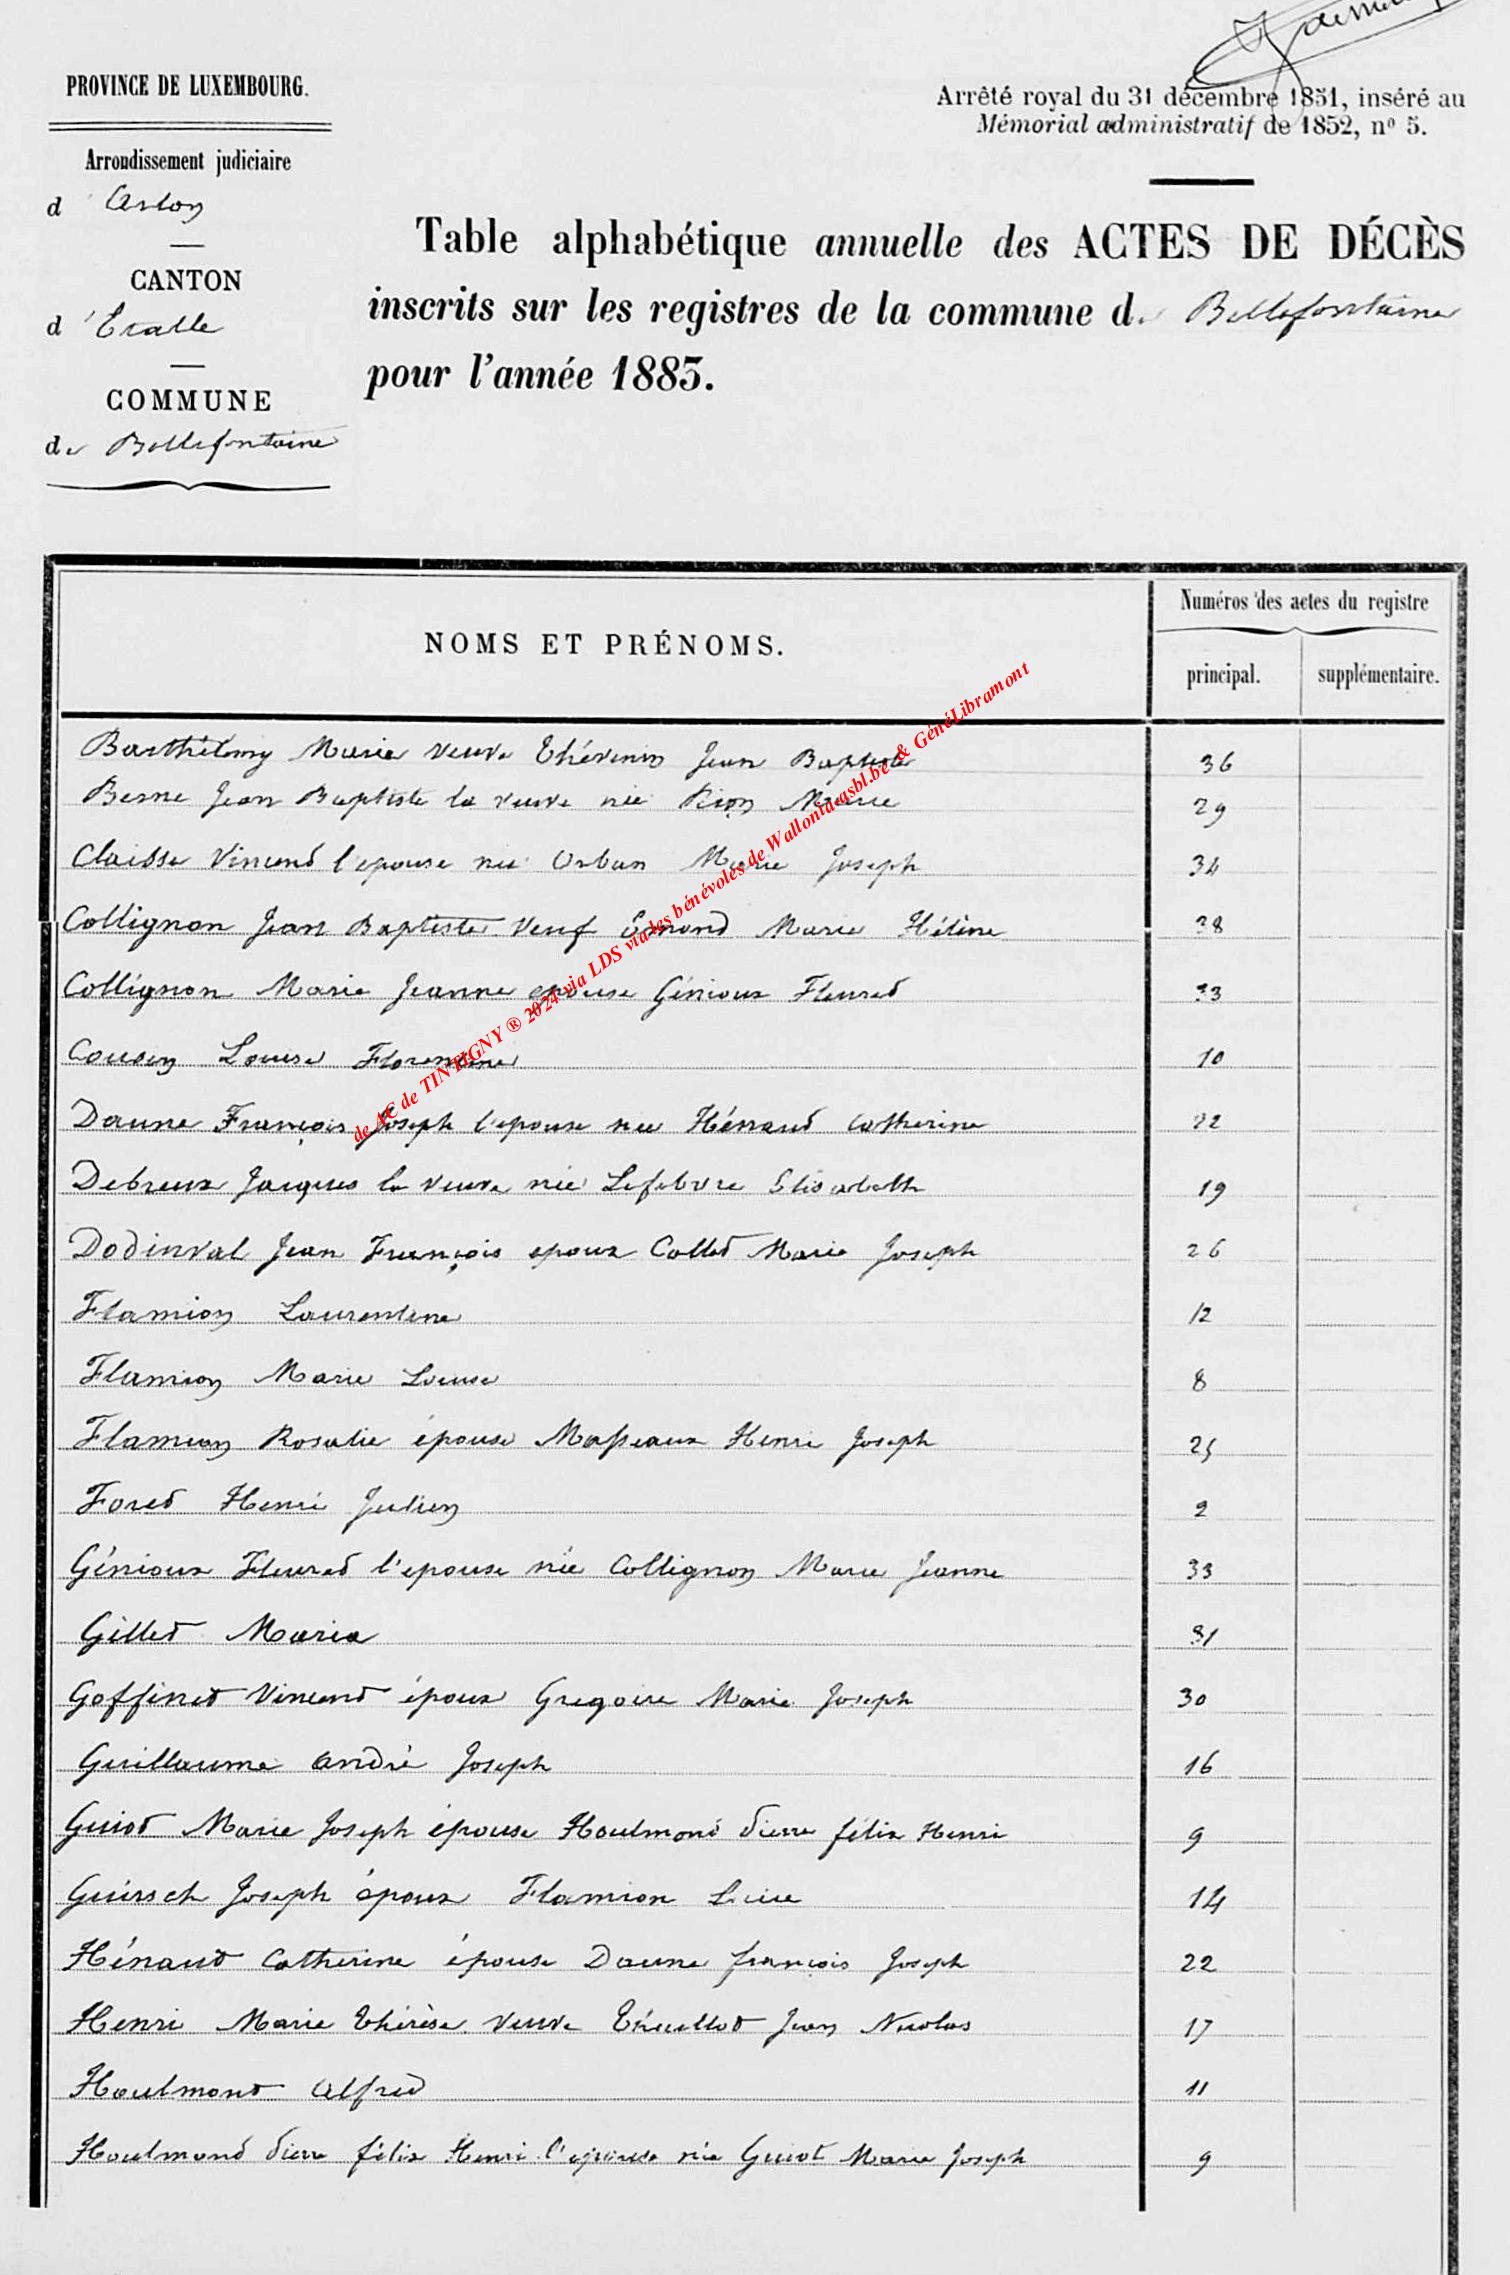 PROVINCE DE LUXEMBOURG.
Arrondissement judiciaire
d Arlon
CANTON
d'Etalle
COMMUNE
de Bellefontaine
Arrêté royal du 31 décembre 1851, inséré au
Mémorial administratif de 1852, nº 5.
Table alphabétique annuelle des ACTES DE DÉCÈS
inscrits sur les registres de la commune de Bellefontaine
pour l'année 1883.
NOMS ET PRÉNOMS.
Numéros des actes du registre
principal. supplémentaire.
Barthélemy Marie veuve Thévenin Jean Baptiste 36
Besne Jean Baptiste la veuve née Pion Marie 29
Claisse Vincent l'epouse née Urban Marie Joseph 34
Collignon Jean Baptiste veuf Emond Marie Hélène 38
Collignon Marie Jeanne epouse Génioux Fleuret 33
Cousin Louise Florentine 10
Daune François Joseph l'epouse née Hénaut Catherine 22
Debreux Jacques la veuve née Lefebvre Elisabeth 19
Dodinval Jean François epoux Collet Marie Joseph 26
Flamion Laurentine 12
Flamion Marie Louise 8
Flamion Rosalie épouse Masseaux Henri Joseph 25
Foret Henri Julien 2
Génioux Fleuret l'epouse née Collignon Marie Jeanne 33
Gillet Maria 31
Goffinet Vincent époux Gregoire Marie Joseph 30
Guillaume André Joseph 16
Guiot Marie Joseph épouse Houlmont Pierre félix Henri 9
Guirsch Joseph époux Flamion Lucie 14
Hénaut Catherine épouse Daune françois Joseph 22
Henri Marie Thérèse veuve Jean Nicolas 17
Houlmont Alfred 11
Houlmond Pierre félix Henri l'epouse née Guiot Marie Joseph 9
de AC de TINTIGNY ® 2024 via LDS via les bénévoles de Wallonia-asbl.be & GénéLibramont